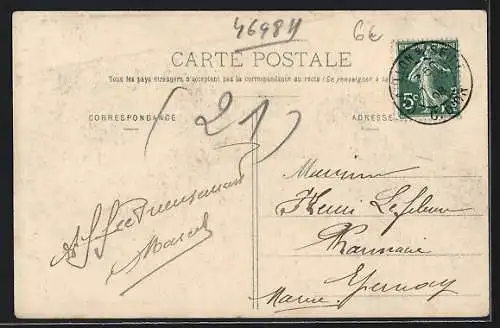 46984
6e
CARTE POSTALE
Tous les pays étrangers n'acceptent pas la correspondance au recto (Se renseigner à
5c
CORRESPONDANCE
ADRESSE
(21)
Monsieur
Henri Lefebvre
Pharmacie
Epernay
Marne
Marcel